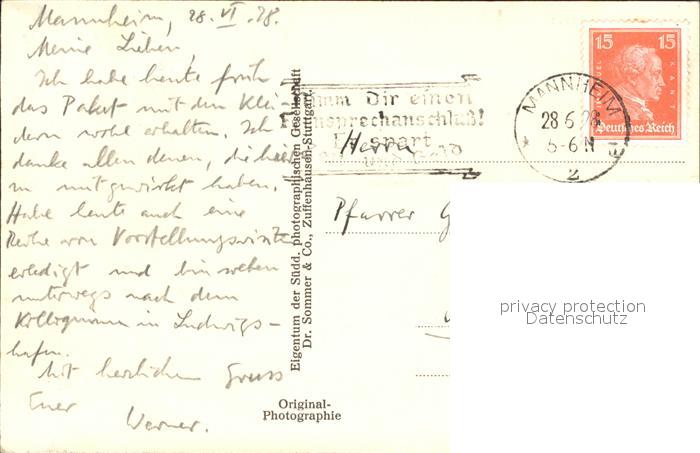 Mannheim, 28. VI. 28.
Meine Lieben,
Ich habe heute früh
das Paket mit den Klei-
dern wohl erhalten. Ich
danke allen denen, die hier-
zu mitgewirkt haben.
Habe heute auch eine
Reihe von Vorstellungsvisiten
erledigt und bin soeben
unterwegs nach dem
Kolloquium in Ludwigs-
hafen.
Mit herzlichem Gruss
Euer
Werner.
Eigentum der Südd. photographischen Gesellschaft
Dr. Sommer & Co., Zuffenhausen-Stuttgart.
Original-
Photographie
Nimm Dir einen
Fernsprechanschluß!
und Geld
Herrn
Pfarrer G
MANNHEIM
28 6 28
5-6 N
2
15 15
KANT
Deutsches Reich
privacy protection
Datenschutz